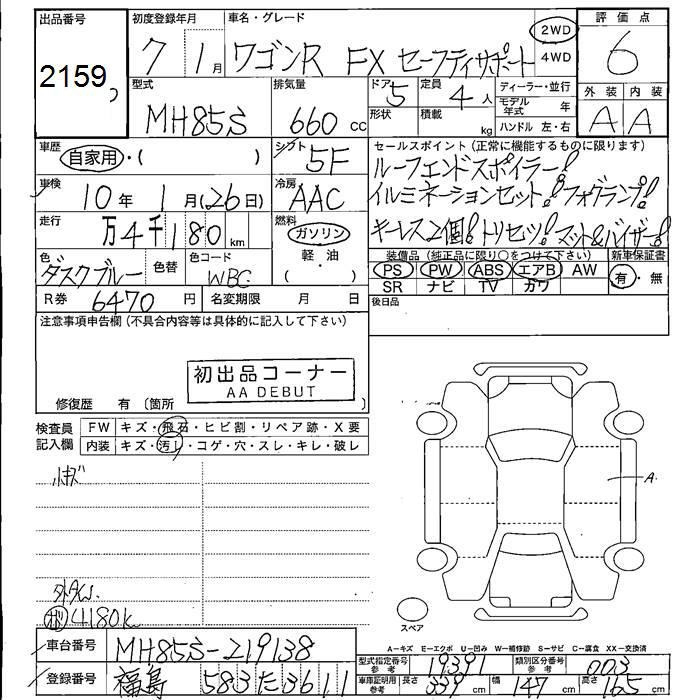 出品番号
2159
初度登録年月
7 1月
車名・グレード
ワゴンR FX セーフティサポート
2WD
4WD
評価点
6
型式
MH85S
排気量
660 cc
ドア
5
形状
定員
4 人
積載
kg
ディーラー・並行
モデル年式 年
ハンドル 左・右
外装 内装
A A
車歴
自家用・( )
シフト
5F
セールスポイント (正常に機能するものに限ります)
ルーフエンドスポイラー!
イルミネーションセット!フォグランプ!
キーレス2個!トリセツ!マット&バイザー!
車検
10年 1月(26日)
冷房
AAC
走行
万4千180km
燃料
ガソリン
軽・油
( )
色
ダスクブルー
色替
色コード
WBC
装備品 (純正品に限り○をつけて下さい)
PS PW ABS エアB AW
SR ナビ TV カワ
新車保証書
有・無
R券 6470 円
名変期限 月 日
後日品
注意事項申告欄 (不具合内容等は具体的に記入して下さい)
初出品コーナー
AA DEBUT
修復歴 有 (箇所 )
検査員記入欄
FW キズ・飛石・ヒビ割・リペア跡・X要
内装 キズ・汚レ・コゲ・穴・スレ・キレ・破レ
4180k
A
スペア
A−キズ E−エクボ U−凹み W−補修跡 S−サビ C−腐食 XX−交換済
車台番号 MH85S-219138
登録番号 福島 583 た 3611
型式指定番号 参考 19391
類別区分番号 参考 003
車庫証明用 参考 長さ 339 cm 幅 147 cm 高さ 165 cm